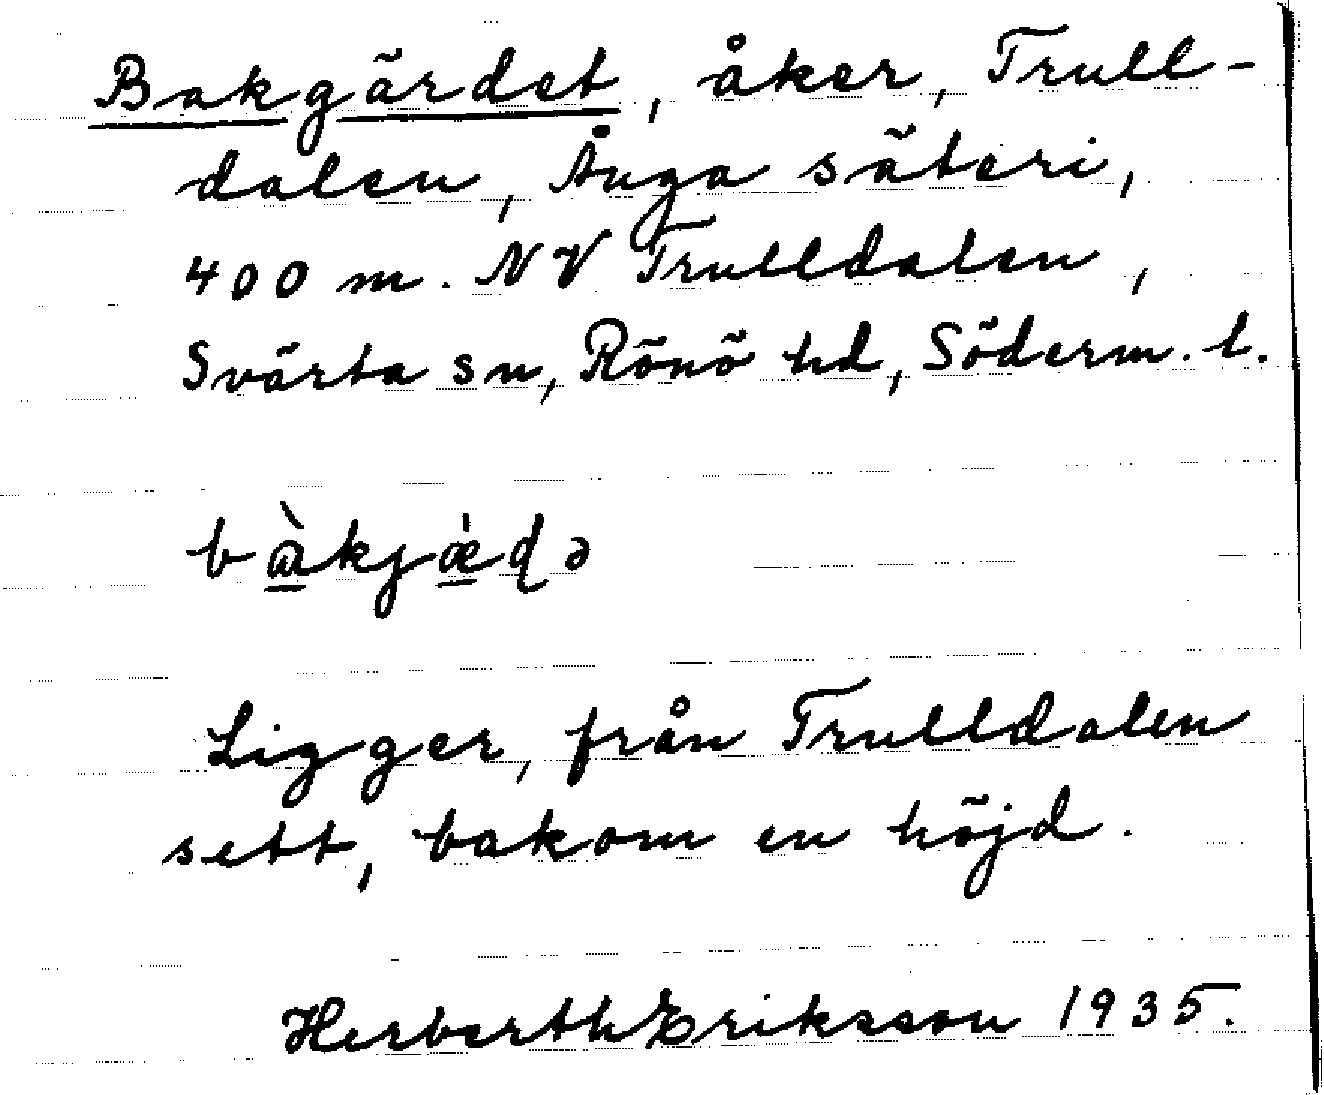 Bakgärdet, åker, Trull-
dalen, Ånga säteri,
400 m. NV Trulldalen,
Svärta sn, Rönö hd, Söderm. l.
bàkjǽɖə
Ligger, från Trulldalen
sett, bakom en höjd.
Herberth Eriksson 1935.